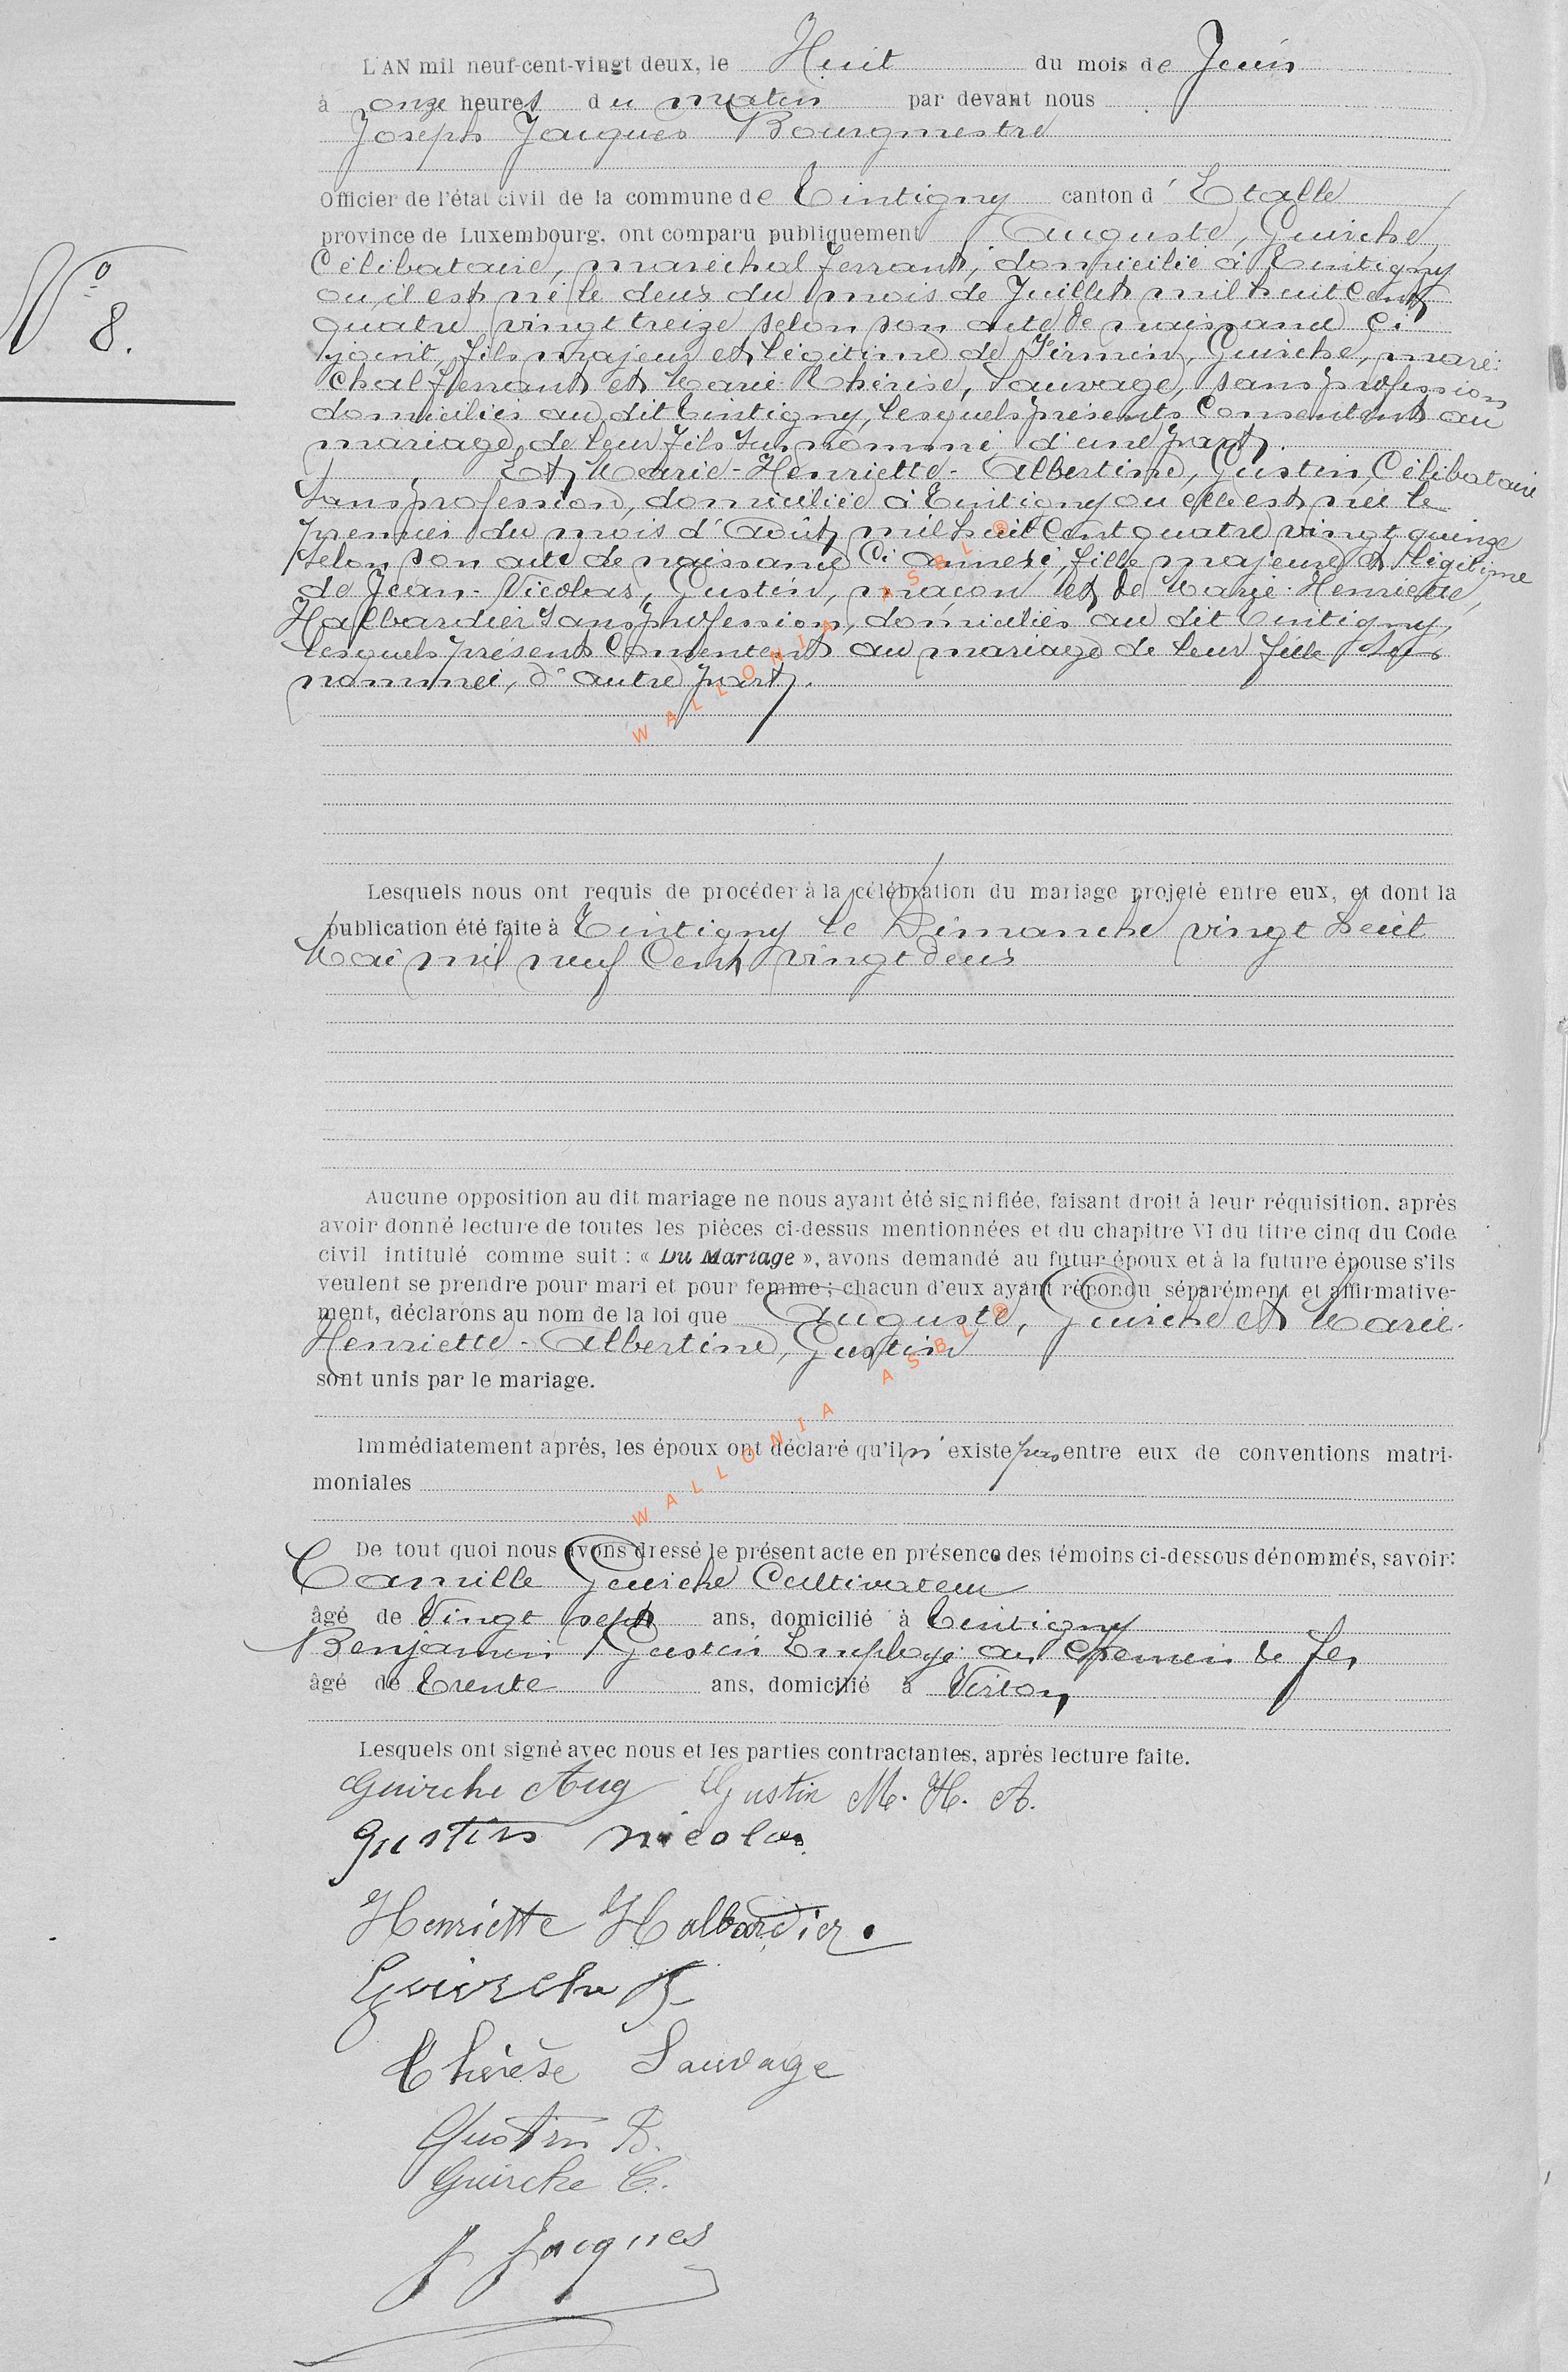 L'AN mil neuf-cent-vingt deux, le Huit du mois de Juin
à onze heures du matin par devant nous
Joseph Jacques Bourgmestre
Officier de l'état civil de la commune de Tintigny canton d' Etalle
province de Luxembourg, ont comparu publiquement Auguste, Guirche,
Célibataire, maréchal ferrant, domicilié à Tintigny
où il est né le deux du mois de Juillet mil huit Cent
quatre vingt treize selon son acte de naissance Ci
joint, fils majeur et légitime de Firmin, Guirche, maré-
chal ferrant et Marie Thérèse, Sauvage, sans profession
domiciliés au dit Tintigny, lesquels présents Consentent au
mariage de leur fils susnommé d'une part.
Et Marie-Henriette-Albertine, Gustin, Célibataire
Sans profession, domiciliée à Tintigny où elle est née le
premier du mois d'Août mil huit Cent quatre vingt quinze
selon son acte de naissance Ci annexé, fille majeure et légitime
de Jean-Nicolas, Gustin, maçon et de Marie-Henriette,
Halbardier Sans profession, domiciliés au dit Tintigny,
lesquels présents Consentent au mariage de leur fille sus
nommée, d'autre part.
Lesquels nous ont requis de procéder à la célébration du mariage projeté entre eux, et dont la
publication été faite à Tintigny le Dimanche vingt huit
Mai mil neuf Cent vingt deux
Aucune opposition au dit mariage ne nous ayant été signifiée, faisant droit à leur réquisition, après
avoir donné lecture de toutes les pièces ci-dessus mentionnées et du chapitre VI du titre cinq du Code
civil intitulé comme suit : « Du Mariage », avons demandé au futur époux et à la future épouse s'ils
veulent se prendre pour mari et pour femme ; chacun d'eux ayant répondu séparément et affirmative-
ment, déclarons au nom de la loi que Auguste, Guirche et Marie-
Henriette-Albertine, Gustin
sont unis par le mariage.
Immédiatement après, les époux ont déclaré qu'il n'existe pas entre eux de conventions matri-
moniales
De tout quoi nous avons dressé le présent acte en présence des témoins ci-dessous dénommés, savoir:
Camille Guirche Cultivateur
âgé de Vingt sept ans, domicilié à Tintigny
Benjamin Gustin Employé au Chemin de fer
âgé de Trente ans, domicilié à Virton
Lesquels ont signé avec nous et les parties contractantes, après lecture faite.
Guirche Aug Gustin M. H. A.
Gustin Nicolas
Henriette Halbardier.
Guirche F
Thérèse Sauvage
Gustin B.
Guirche C.
J Jacques
N° 8.
WALLONIA ASBL ®
WALLONIA ASBL ®